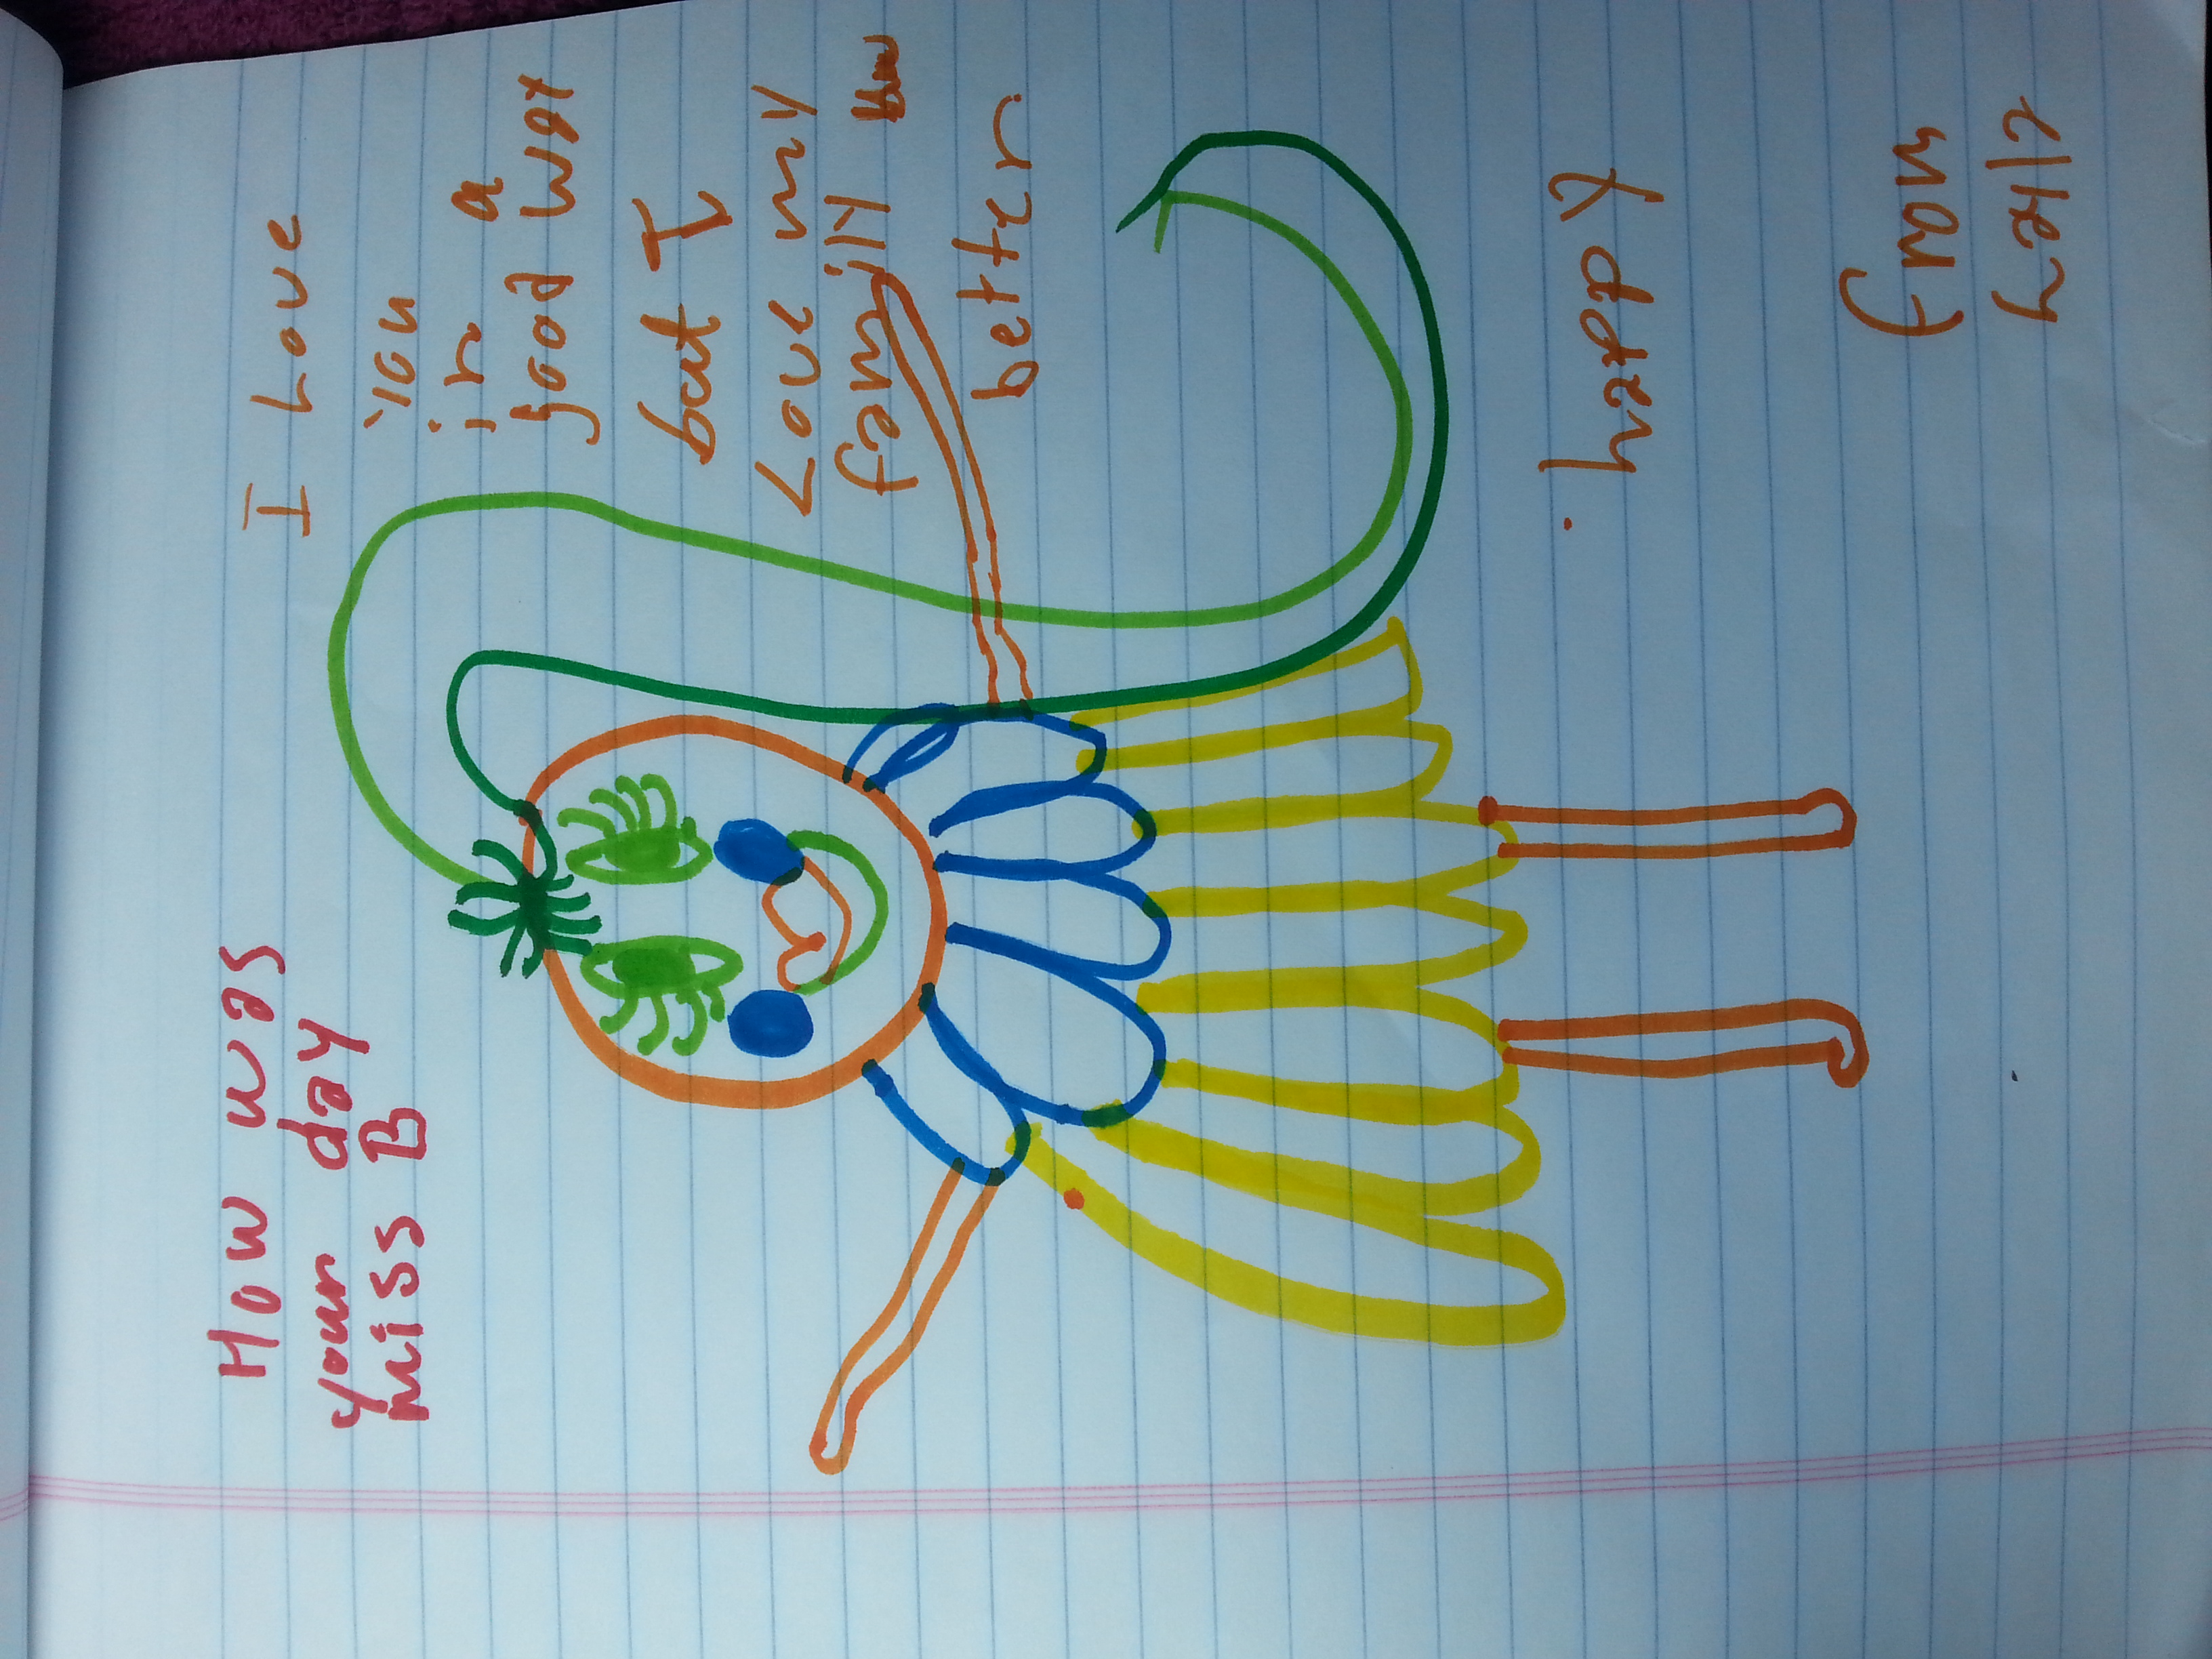 How was
your day
miss B
I Love
You
in a
good way
but I
Love my
family
better
happy
From
Layla